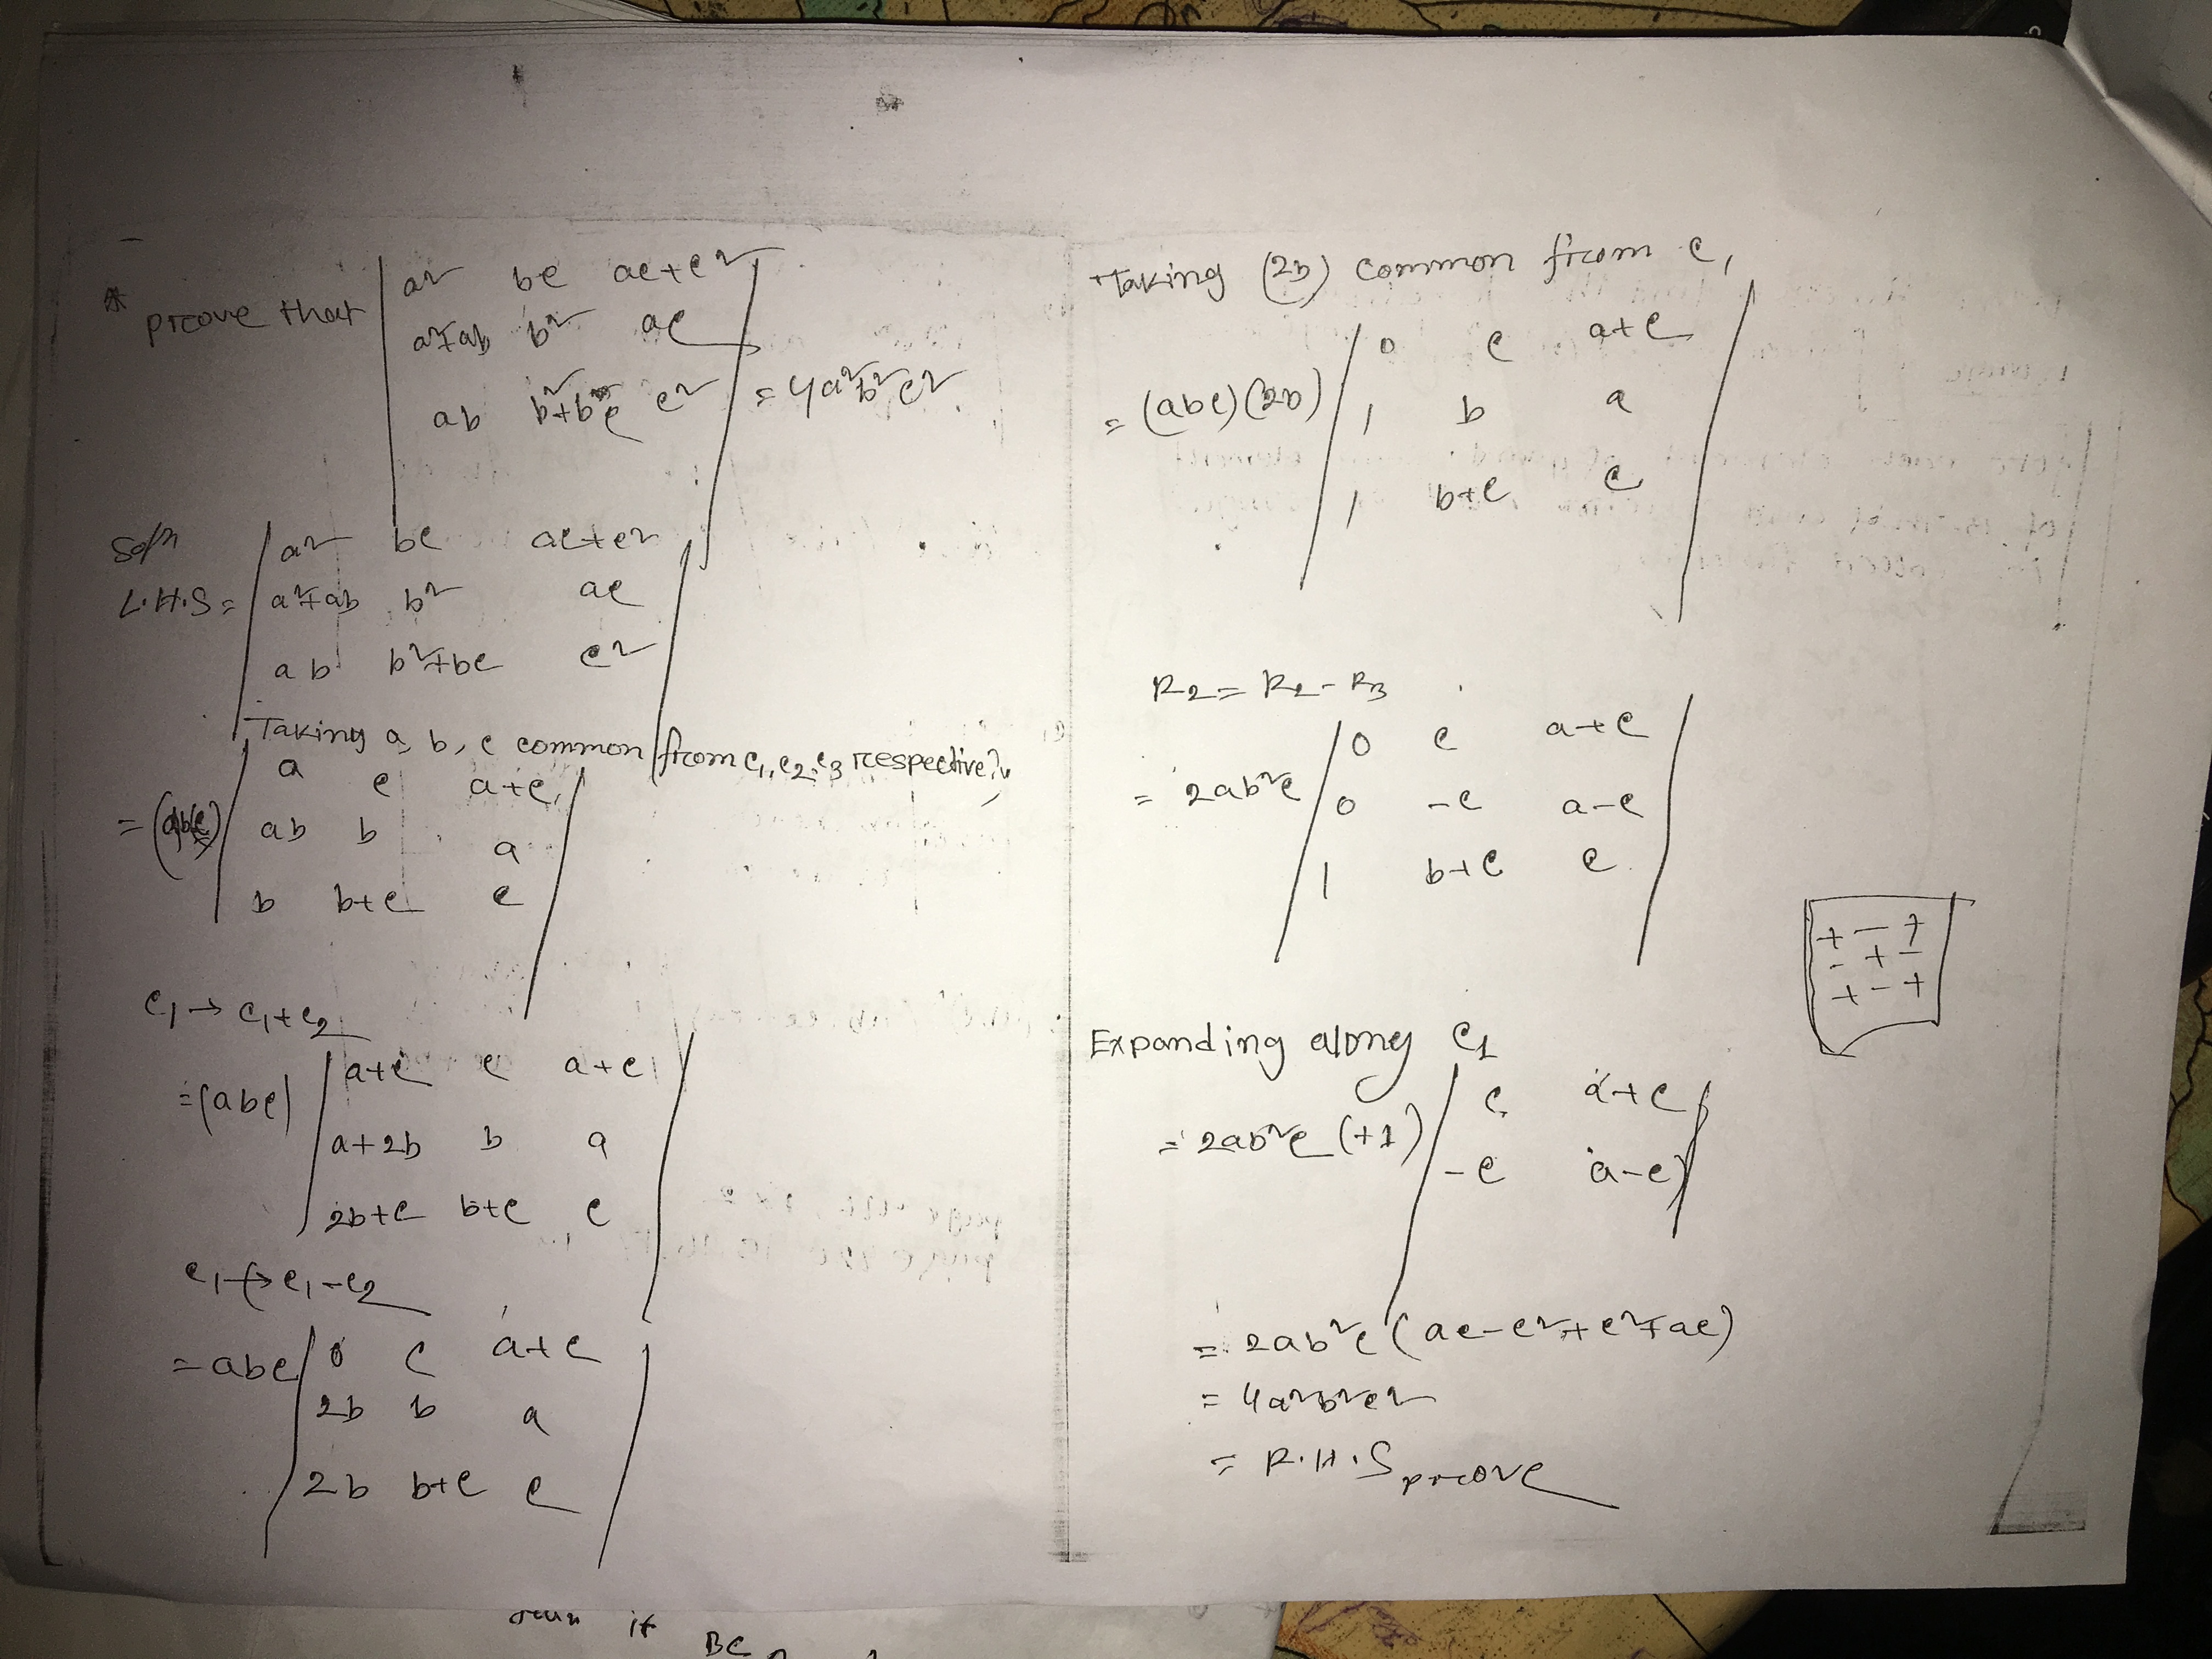 * prove that | a² bc ac+c² |
| a²+ab b² ac |
| ab b²+bc c² | = 4a²b²c²
Soln
L.H.S = | a² bc ac+c² |
| a²+ab b² ac |
| ab b²+bc c² |
Taking a, b, c common from c₁, c₂, c₃ respectively
= (abc) | a c a+c |
| ab b a |
| b b+c c |
c₁ → c₁+c₂
= (abc) | a+c c a+c |
| a+2b b a |
| 2b+c b+c c |
c₁ → c₁-c₂
= abc | 0 c a+c |
| 2b b a |
| 2b b+c c |
Taking (2b) common from c₁
= (abc)(2b) | 0 c a+c |
| 1 b a |
| 1 b+c c |
R₂ = R₂ - R₃
= 2ab²c | 0 c a+c |
| 0 -c a-c |
| 1 b+c c |
+ - +
- + -
+ - +
Expanding along c₁
= 2ab²c (+1) | c a+c |
| -c a-c |
= 2ab²c (ac-c²+c²+ac)
= 4a²b²c²
= R.H.S prove
it
BC